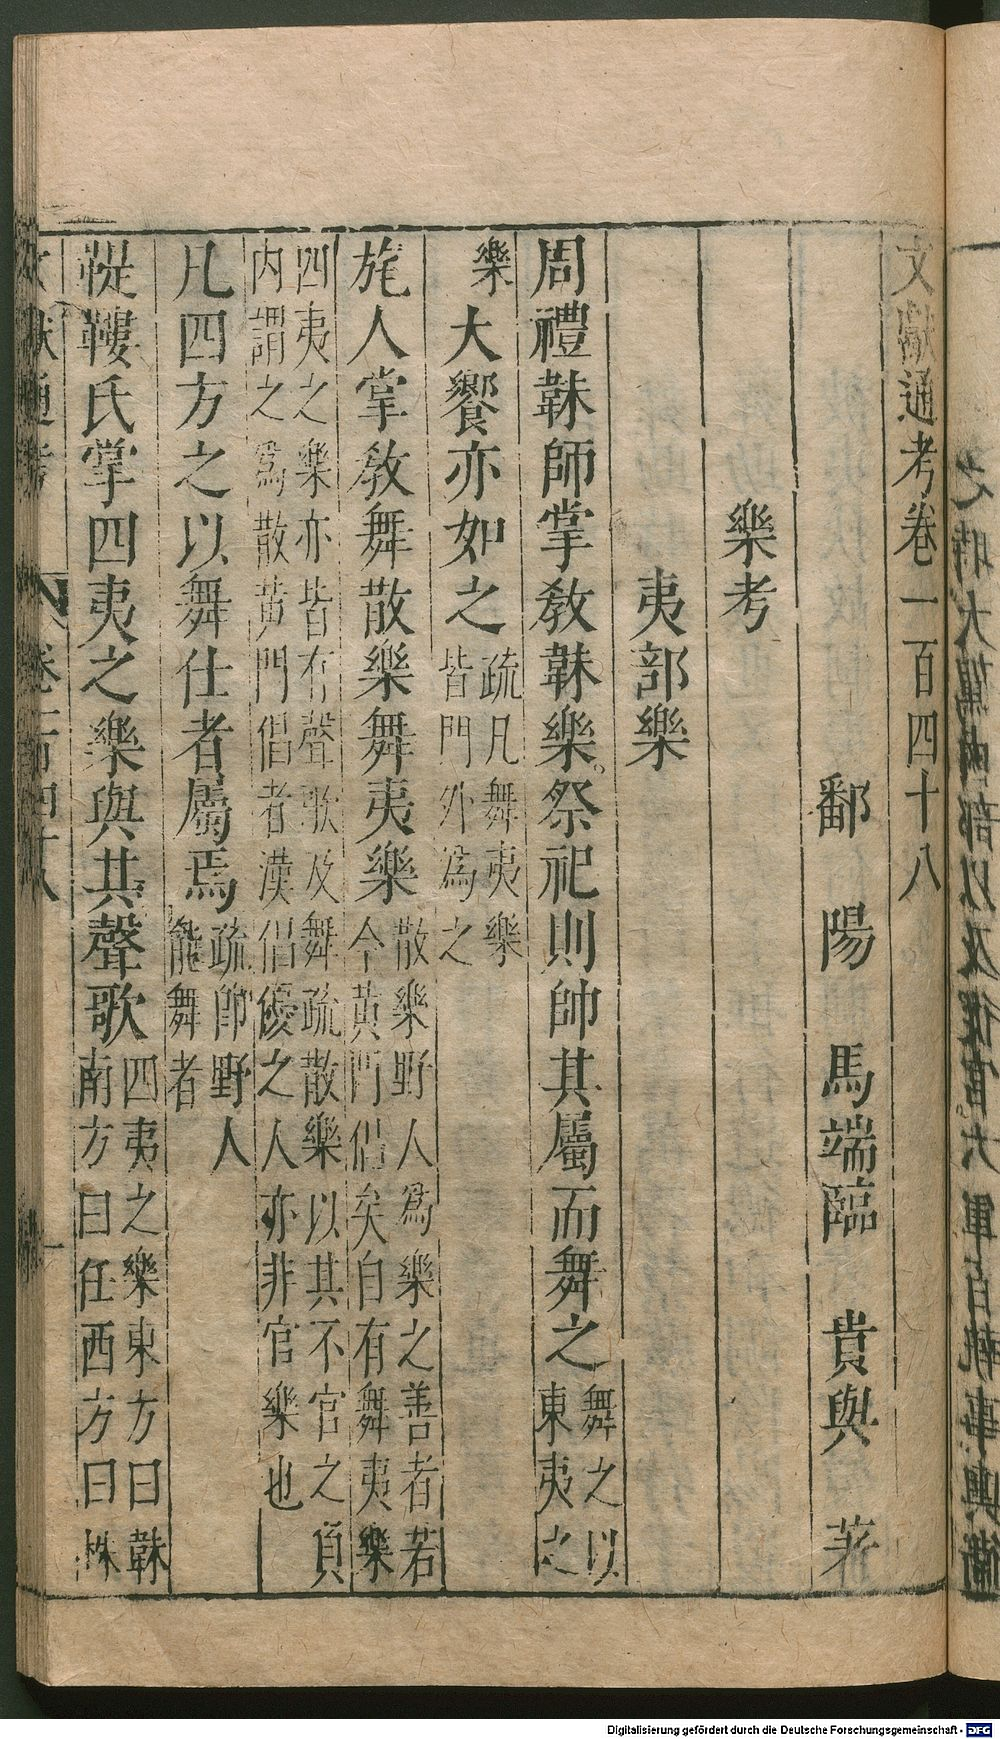 文獻通考卷一百四十八
鄱陽馬端臨貴與著
樂考
夷部樂
周禮韎師掌敎韎樂祭祀則帥其屬而舞之舞之以東夷之
樂大饗亦如之疏凡舞夷樂皆門外爲之
旄人掌敎舞散樂舞夷樂散樂野人爲樂之善者若今黄門倡矣自有舞夷樂
四夷之樂亦皆有聲歌及舞疏散樂以其不官之員内謂之爲散黄門倡者漢倡優之人亦非官樂也
凡四方之以舞仕者屬焉疏卽野人能舞者
鞮鞻氏掌四夷之樂與其聲歌四夷之樂東方曰韎南方曰任西方曰株
文獻通考 卷一百四十八 一
Digitalisierung gefördert durch die Deutsche Forschungsgemeinschaft - DFG